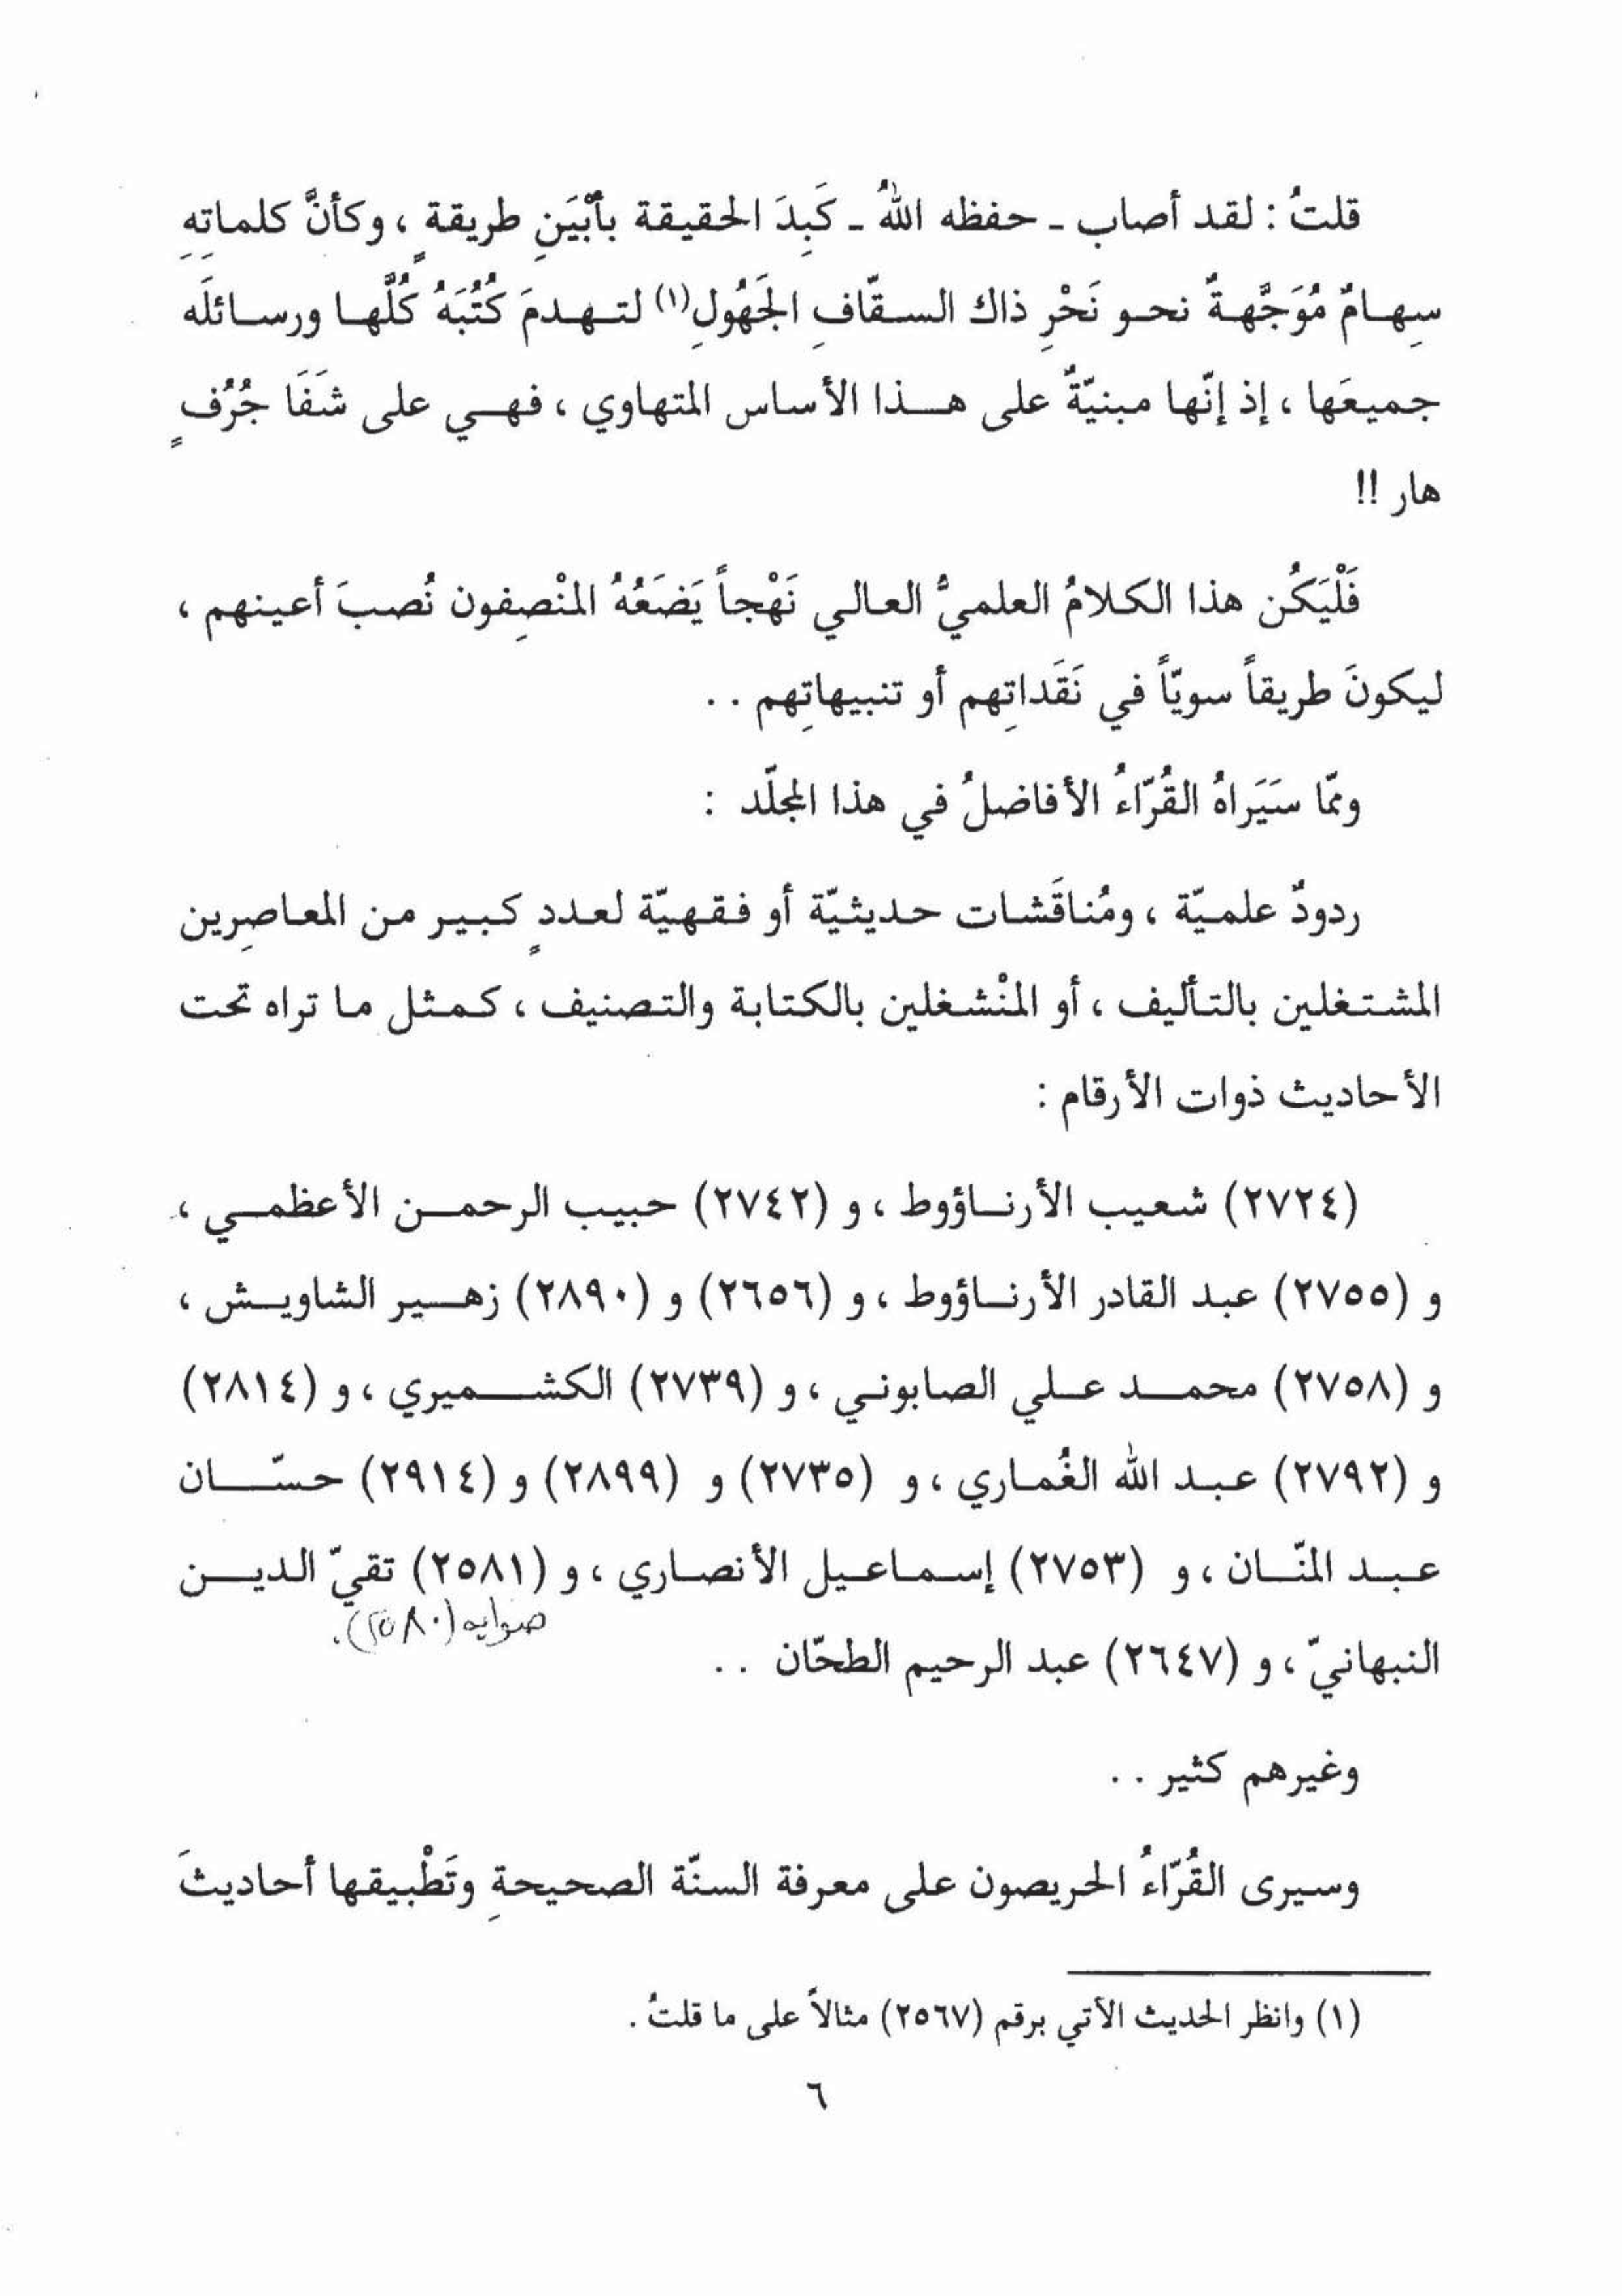 قلتُ : لقد أصاب ـ حفظه اللهُ ـ كَبِدَ الحقيقة بأَبْيَنِ طريقةٍ ، وكأنَّ كلماتِهِ
سِهامٌ مُوَجَّهةٌ نحو نَحْرِ ذاك السقّافِ الجَهُولِ(١) لتهدمَ كُتُبَهُ كُلَّها ورسائلَه
جميعَها ، إذ إنّها مبنيّةٌ على هذا الأساس المتهاوي ، فهي على شَفَا جُرُفٍ
هار !!
فَلْيَكُن هذا الكلامُ العلميُّ العالي نَهْجاً يَضَعُهُ المنْصِفون نُصبَ أعينهم ،
ليكونَ طريقاً سويّاً في نَقَداتِهم أو تنبيهاتِهم . .
وممّا سَيَراهُ القُرّاءُ الأفاضلُ في هذا المجلّد :
ردودٌ علميّة ، ومُناقَشات حديثيّة أو فقهيّة لعددٍ كبير من المعاصِرين
المشتغلين بالتأليف ، أو المنْشغلين بالكتابة والتصنيف ، كمثل ما تراه تحت
الأحاديث ذوات الأرقام :
(٢٧٢٤) شعيب الأرناؤوط ، و (٢٧٤٢) حبيب الرحمن الأعظمي ،
و (٢٧٥٥) عبد القادر الأرناؤوط ، و (٢٦٥٦) و (٢٨٩٠) زهير الشاويش ،
و (٢٧٥٨) محمد علي الصابوني ، و (٢٧٣٩) الكشميري ، و (٢٨١٤)
و (٢٧٩٢) عبد الله الغُماري ، و (٢٧٣٥) و (٢٨٩٩) و (٢٩١٤) حسّان
عبد المنّان ، و (٢٧٥٣) إسماعيل الأنصاري ، و (٢٥٨١) تقيّ الدين
صوابه (٢٥٨٠).
النبهانيّ ، و (٢٦٤٧) عبد الرحيم الطحّان . .
وغيرهم كثير . .
وسيرى القُرّاءُ الحريصون على معرفة السنّة الصحيحةِ وتَطْبيقها أحاديثَ
(١) وانظر الحديث الآتي برقم (٢٥٦٧) مثالاً على ما قلتُ .
٦